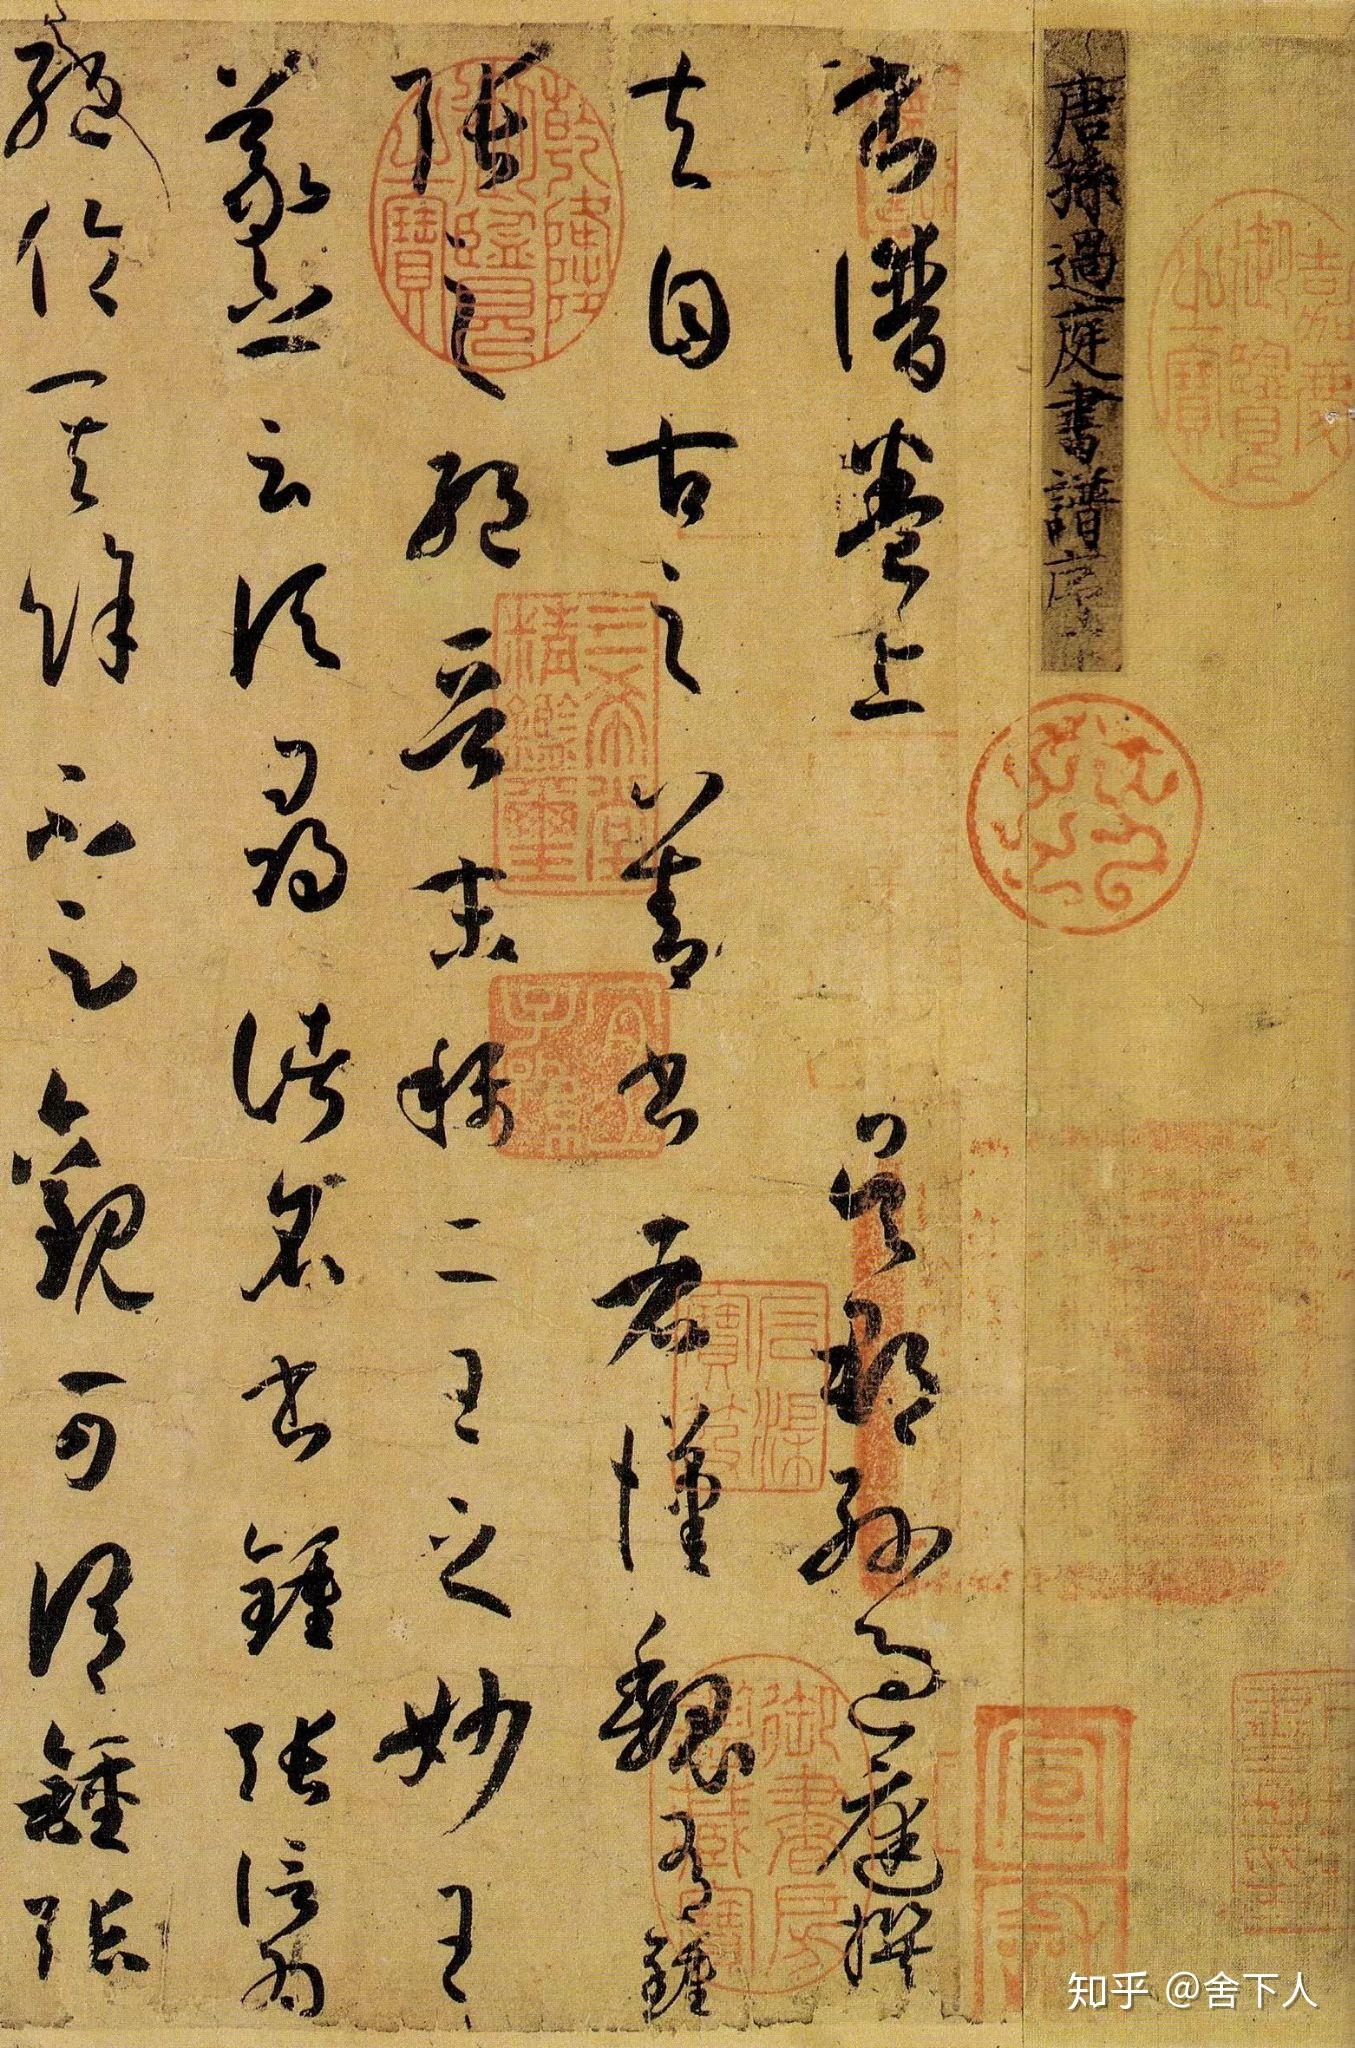 唐孫過庭書譜序
書譜卷上 吳郡孫過庭撰
夫自古之善書者漢魏有鍾
張之絕晉末稱二王之妙王
羲之云頃尋諸名書鍾張信為
絕倫其餘不足觀可謂鍾張
乾隆御覽之寶
嘉慶御覽之寶
三希堂精鑑璽
宜子孫
石渠寶笈
御書房鑑藏寶
知乎 @舍下人